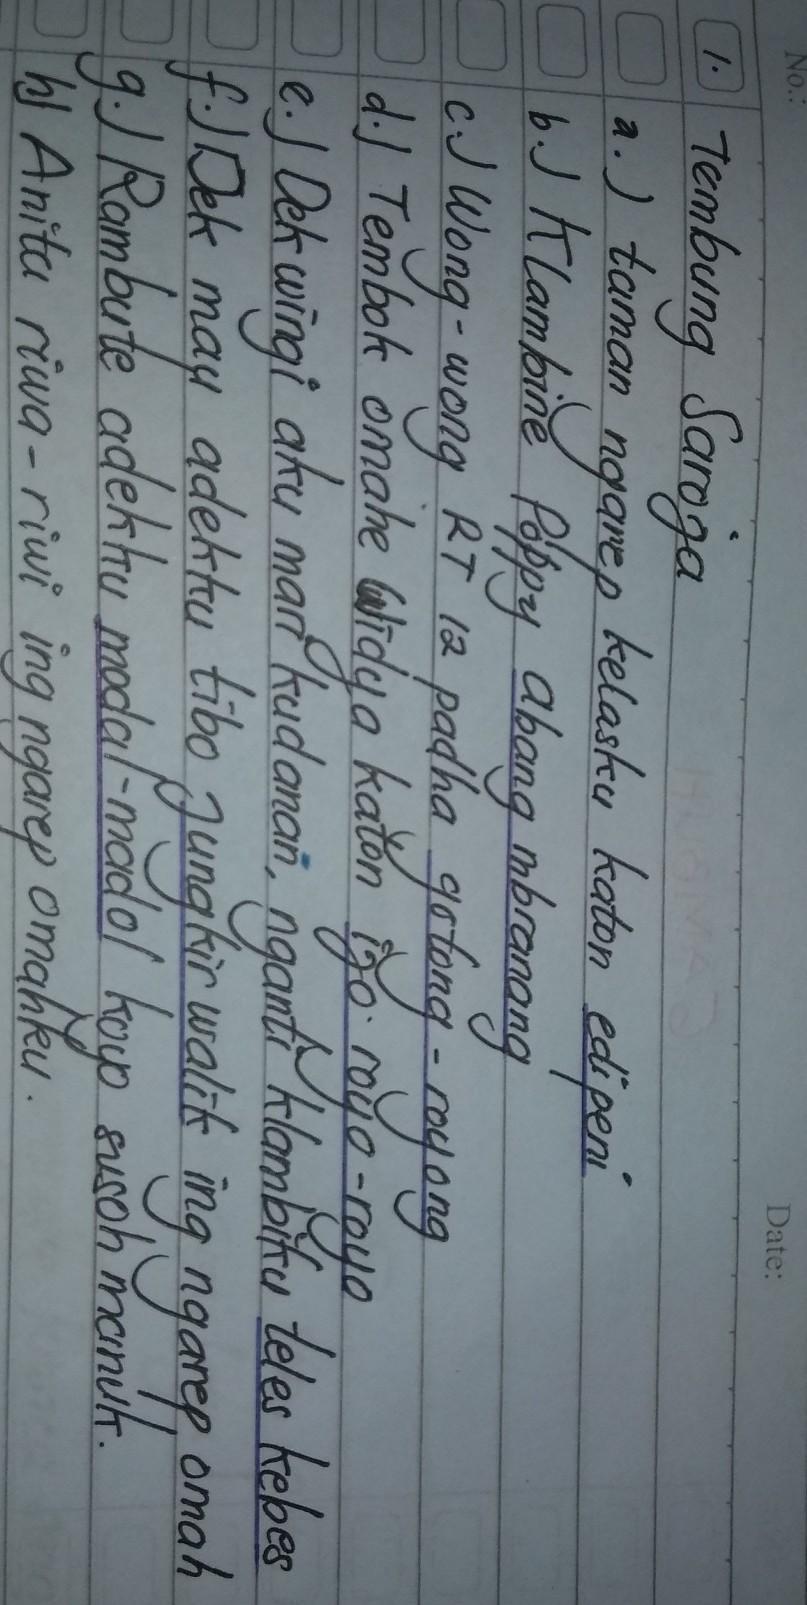 No.:
Date:
1. Tembung Saroja
a.) taman ngarep kelasku katon edipeni
b.) Klambine Poppy abang mbranang
c.) Wong-wong RT 12 padha gotong-royong
d.) Tembok omahe Widya katon ijo royo-royo
e.) Dek wingi aku mari kudanan, nganti klambiku teles kebes
f.) Dek mau adekku tibo jungkir walik ing ngarep omah
g.) Rambute adekku modal-madol koyo susoh manuk.
h) Anita riwa-riwi ing ngarep omahku.